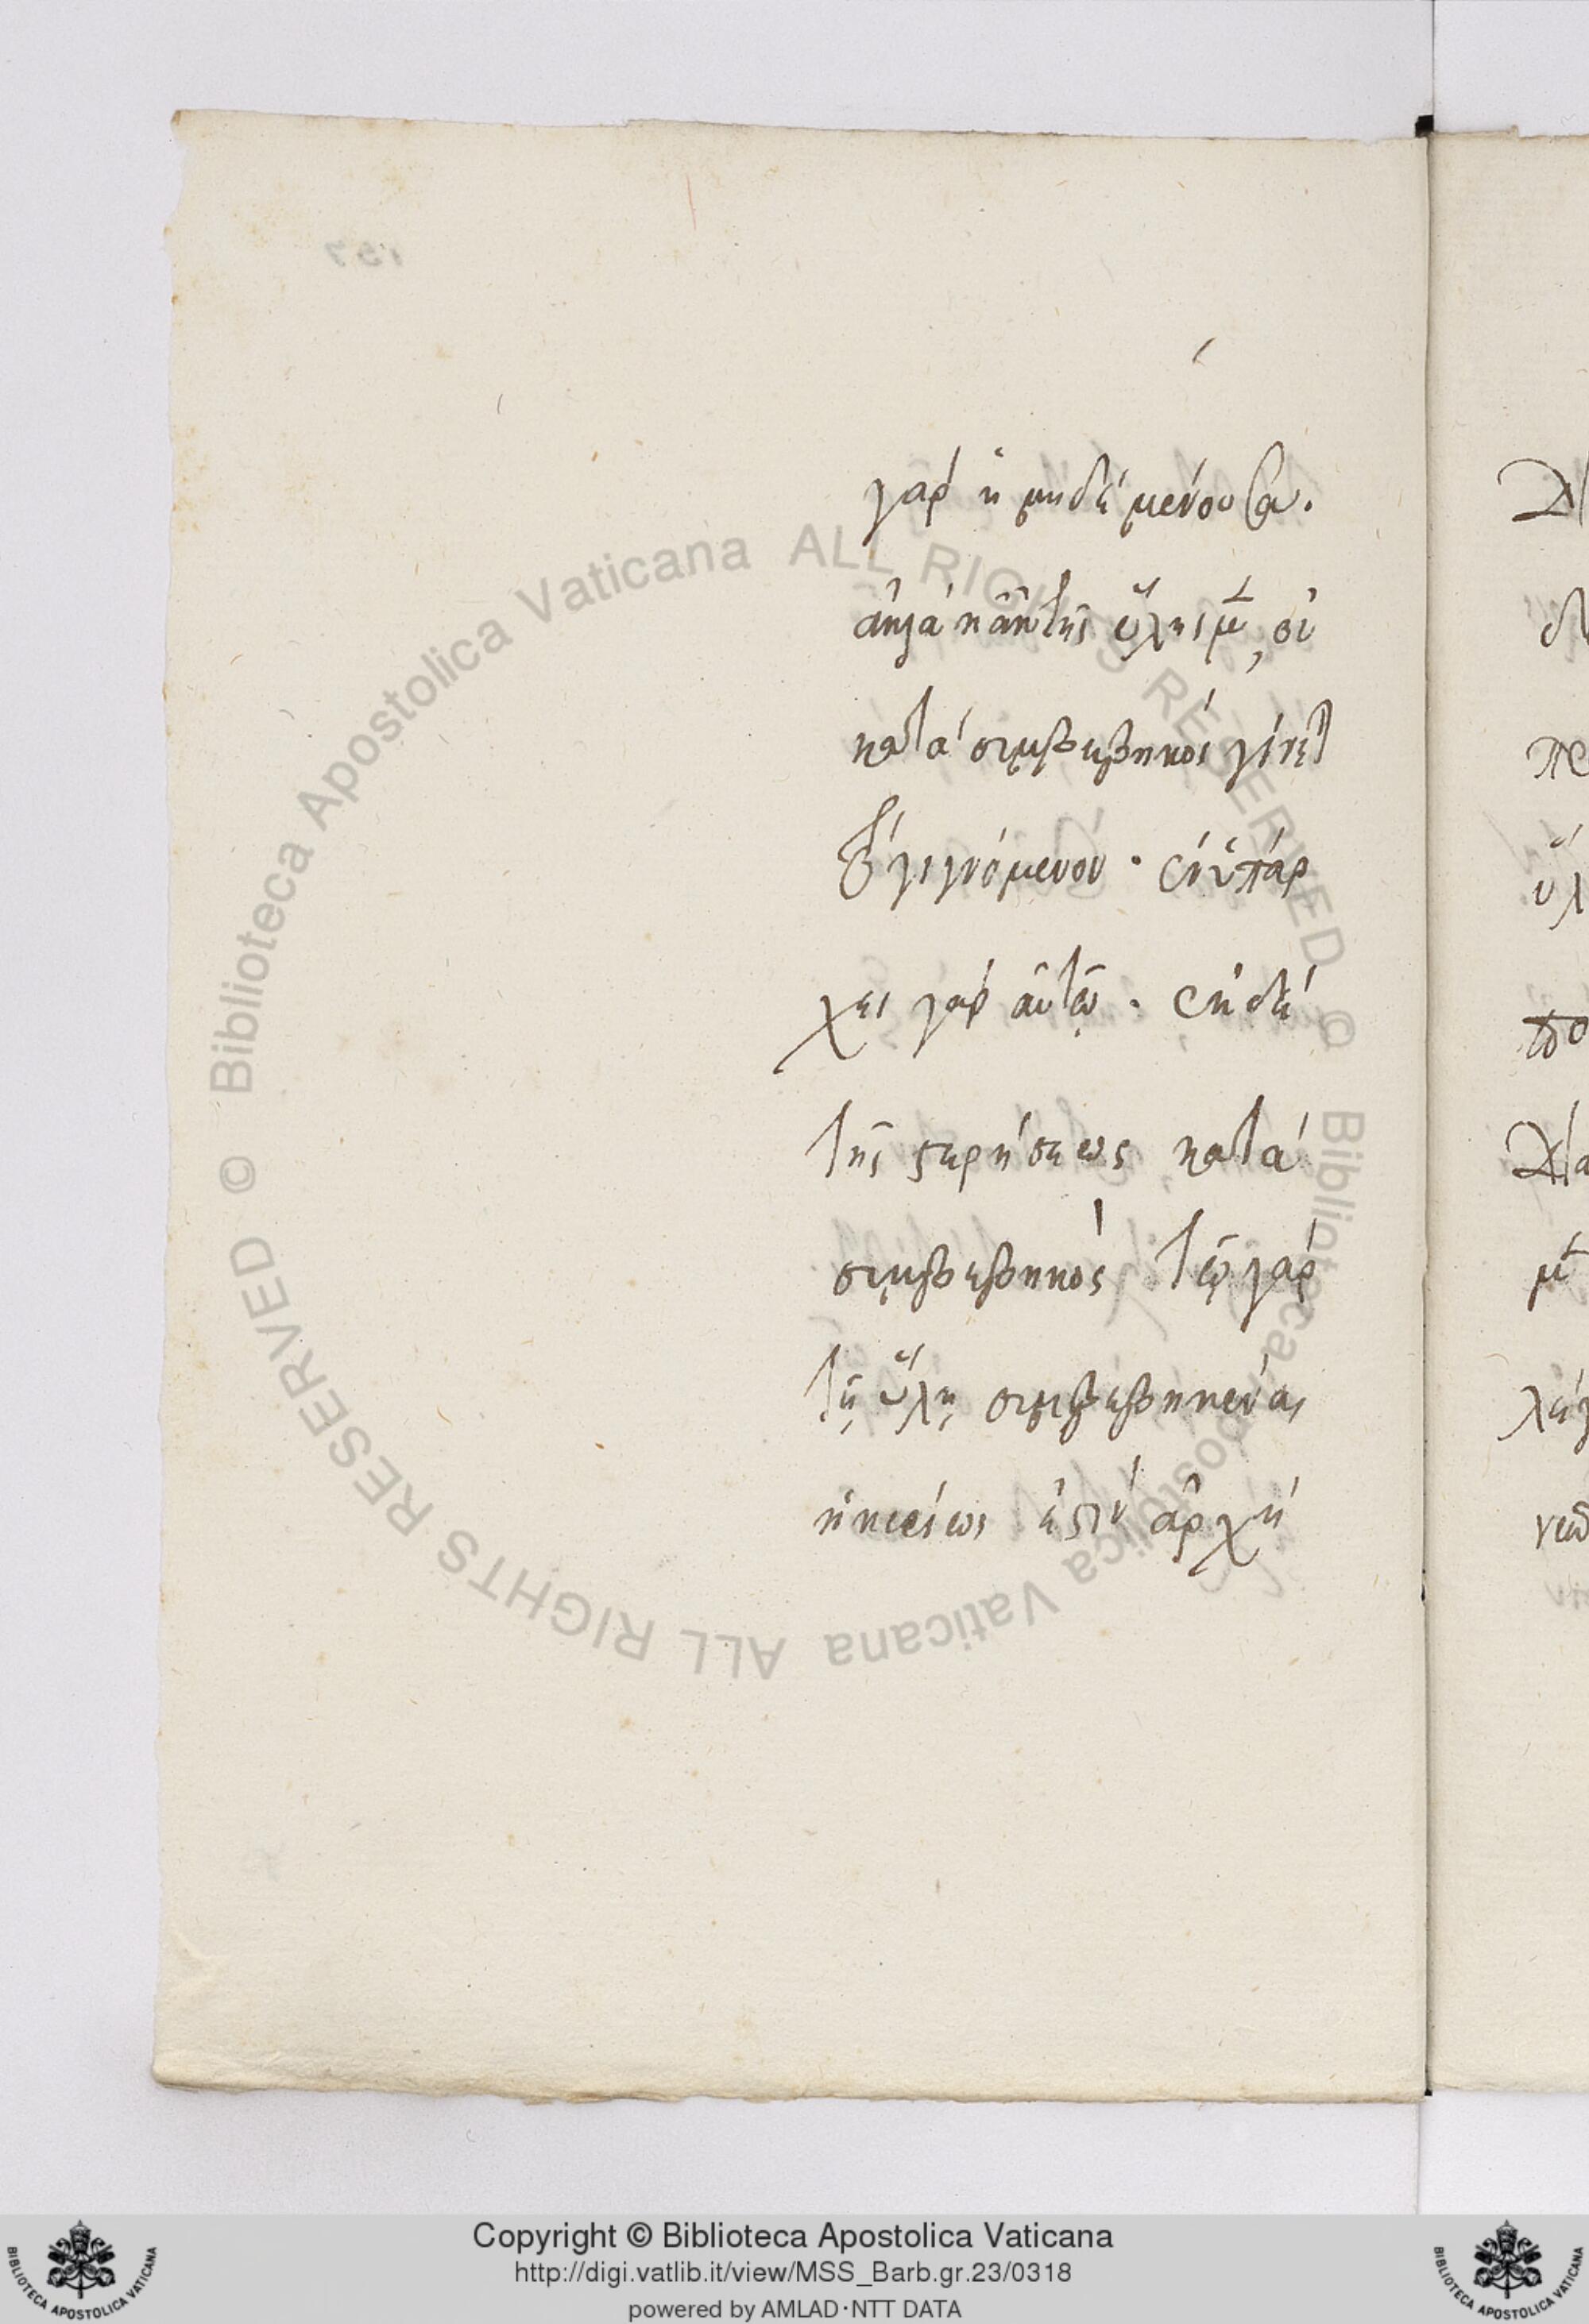 γὰρ ἡ μηδὲ μένουσα.
ἀλλὰ κἀκ τῆς ὕλης μὲν, οὐ
κατὰ συμβεβηκὸς γίνεται
τὸ γιγνόμενον· ἐνυπάρ
χει γὰρ αὐτῷ· ἐκ δὲ
τῆς στερήσεως κατὰ
συμβεβηκός τῷ γὰρ
τῇ ὕλῃ συμβεβηκέναι
ἡ κυρίως ἐστὶν ἀρχὴ
Copyright © Biblioteca Apostolica Vaticana
http://digi.vatlib.it/view/MSS_Barb.gr.23/0318
powered by AMLAD·NTT DATA
© Biblioteca Apostolica Vaticana ALL RIGHTS RESERVED © Biblioteca Apostolica Vaticana ALL RIGHTS RESERVED
BIBLIOTECA APOSTOLICA VATICANA
BIBLIOTECA APOSTOLICA VATICANA